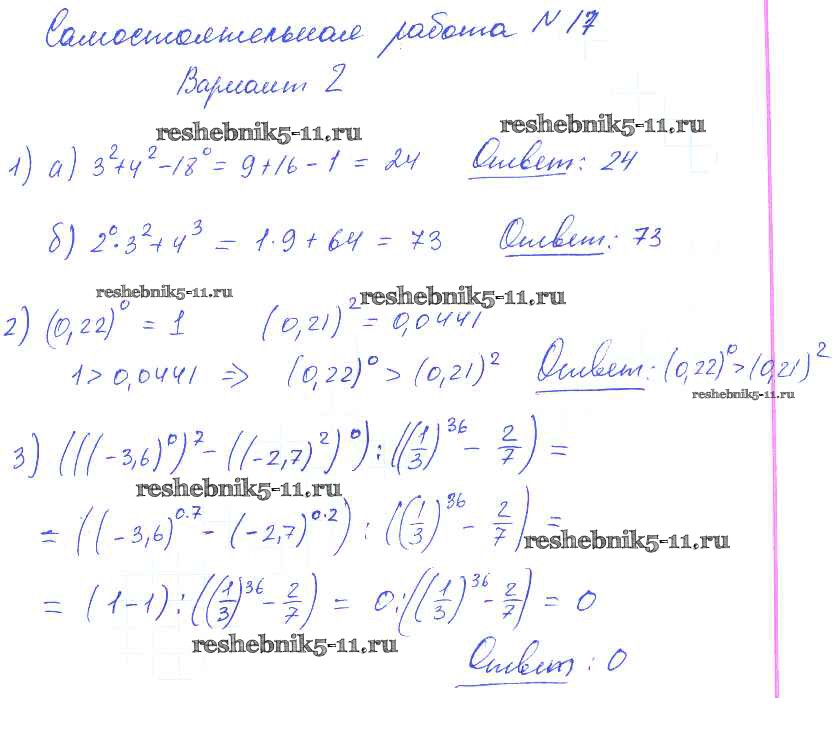 Самостоятельная работа N 17
Вариант 2
reshebnik5-11.ru reshebnik5-11.ru
1) а) 3²+4²-18⁰ = 9+16-1 = 24 Ответ: 24
б) 2⁰·3²+4³ = 1·9+64 = 73 Ответ: 73
reshebnik5-11.ru reshebnik5-11.ru
2) (0,22)⁰ = 1 (0,21)² = 0,0441
1 > 0,0441 => (0,22)⁰ > (0,21)² Ответ: (0,22)⁰ > (0,21)²
reshebnik5-11.ru
3) (((-3,6)⁰)⁷ - ((-2,7)²)⁰) : ((1/3)³⁶ - 2/7) =
reshebnik5-11.ru
= ((-3,6)⁰·⁷ - (-2,7)⁰·²) : ((1/3)³⁶ - 2/7) =
reshebnik5-11.ru
= (1-1) : ((1/3)³⁶ - 2/7) = 0 : ((1/3)³⁶ - 2/7) = 0
reshebnik5-11.ru
Ответ: 0